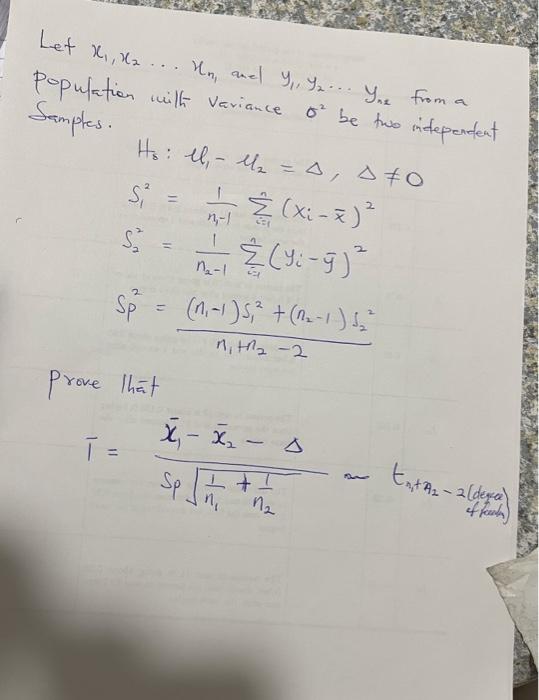 Let x₁, x₂ ... xn₁ and y₁, y₂ ... yn₂ from a
population with variance σ² be two independent
Samples.
H₀: μ₁ - μ₂ = Δ, Δ ≠ 0
S₁² = 1/(n₁-1) Σᵢ₌₁ⁿ (xi - x̄)²
S₂² = 1/(n₂-1) Σᵢ₌₁ⁿ (yi - ȳ)²
Sp² = ((n₁-1)S₁² + (n₂-1)S₂²)/(n₁+n₂-2)
prove that
T = (x̄₁ - x̄₂ - Δ)/(Sp√(1/n₁ + 1/n₂)) ~ t n₁+n₂-2 (degree
of freedom)